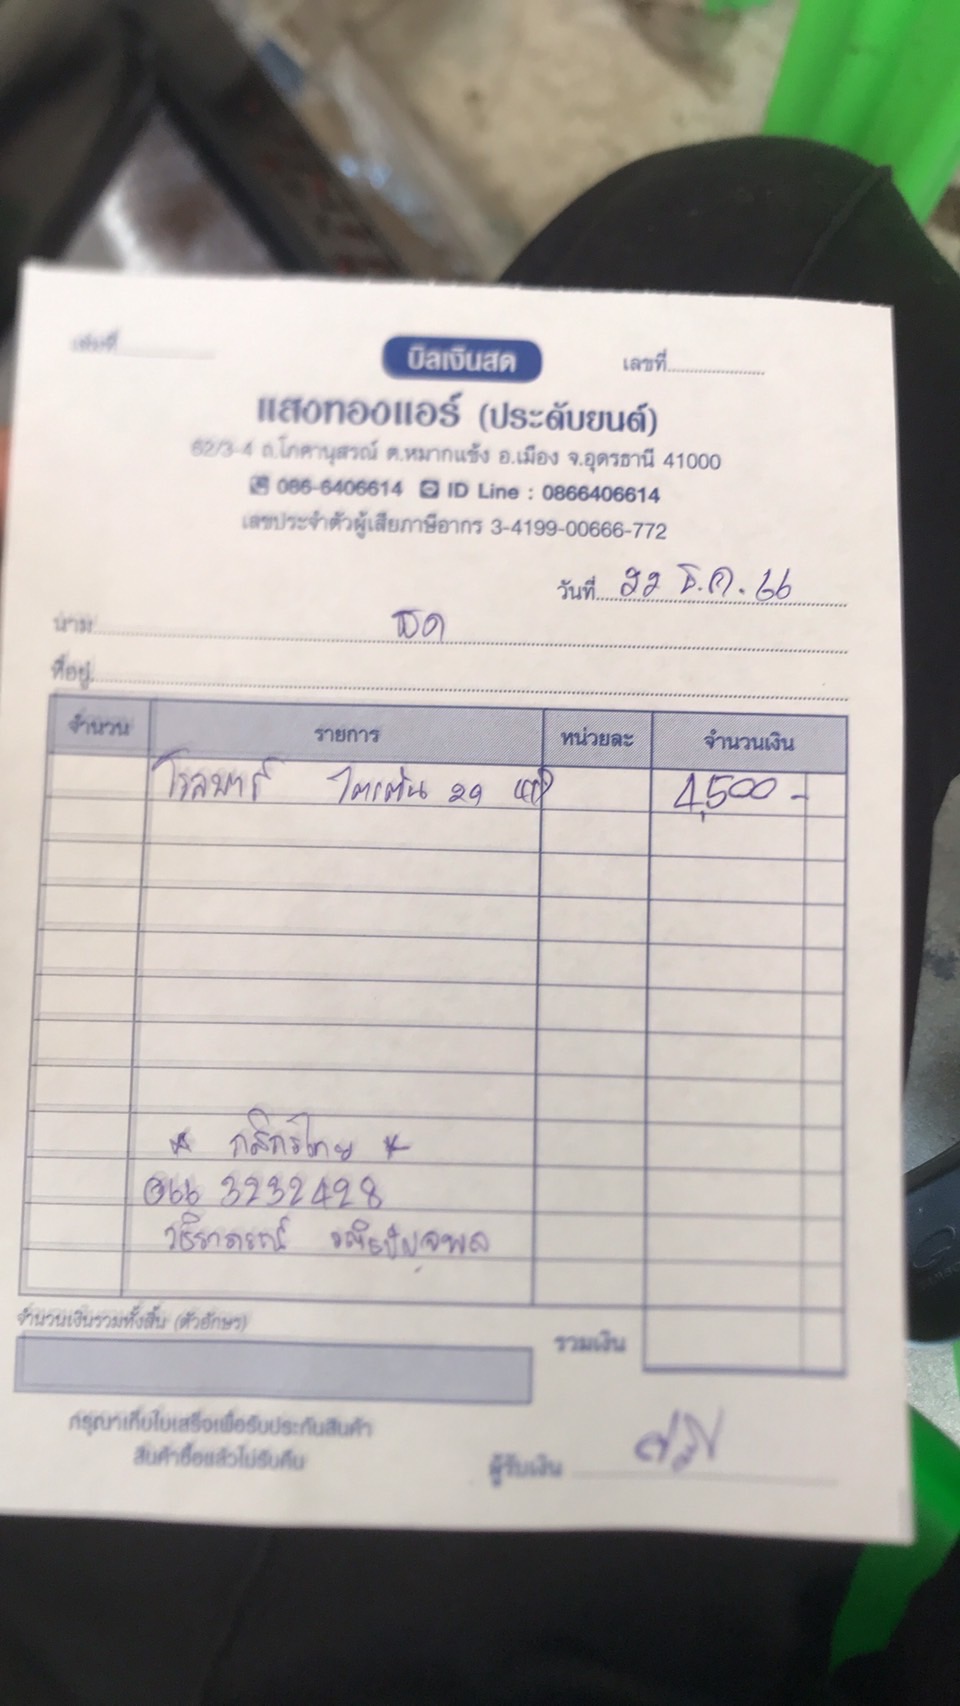 เล่มที่
บิลเงินสด
เลขที่
แสงทองแอร์ (ประดับยนต์)
62/3-4 ถ.โภคานุสรณ์ ต.หมากแข้ง อ.เมือง จ.อุดรธานี 41000
086-6406614 ID Line : 0866406614
เลขประจำตัวผู้เสียภาษีอากร 3-4199-00666-772
วันที่ 22 ธ.ค. 66
นาม สด
ที่อยู่
จำนวน รายการ หน่วยละ จำนวนเงิน
โรลบาร์ ไตตัน 4,500 -
* กสิกรไทย *
066 3232428
วชิราภรณ์
จำนวนเงินรวมทั้งสิ้น (ตัวอักษร)
รวมเงิน
กรุณาเก็บใบเสร็จเพื่อรับประกันสินค้า
สินค้าซื้อแล้วไม่รับคืน
ผู้รับเงิน